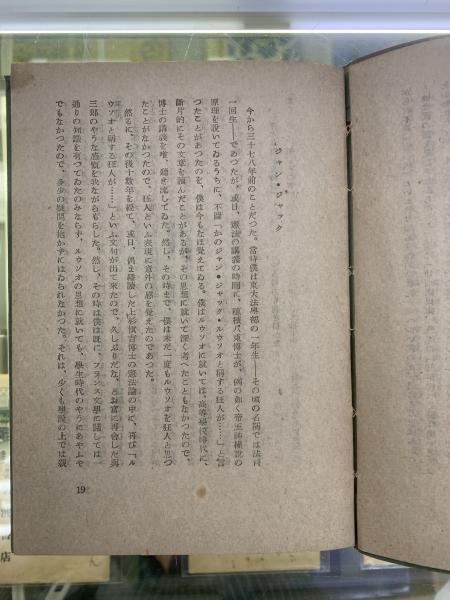 ジャン・ジャック
今から三十七八年前のことだつた。當時僕は東大法學部の一年生――その頃の名稱では法科
一回生――であつたが、或日、憲法の講義の時間に、穗積八束博士が、例の如く帝王神權說の
原理を說いてゐるうちに、不圖「かのジャン・ジャック・ルウソオと稱する狂人が……」と言
つたことがあつたのを、僕は今もなほ覺えてゐる。僕はルウソオに就いては、高等學校時代に、
斷片的にその文章を讀んだことがあるが、その思想に就いて深く考へたこともなかつたので、
博士の講義を唯、聽き流してゐた。然し、その時まで、僕は未だ一度もルウソオを狂人と思つ
たことがなかつたので、狂人といふ表現に意外の感を覺えたのであつた。
然るに、その後十數年を經て、或日、偶ま繙讀した上杉愼吉博士の憲法論の中に、再び「ル
ウソオと稱する狂人が……」といふ文句が出て來たので、久しぶりだな、とお富に再會した與
三郎のやうな感慨を我ながらもらした。然し、その時は僕は旣に、フランス文學に關しては一
通りの知識を有つてゐたのみならず、ルウソオの思想に就いても、學生時代のやうにあやふや
でもなかつたので、多少の疑問を抱かずにはゐられなかつた。それは、少くも學說の上では親
19
店